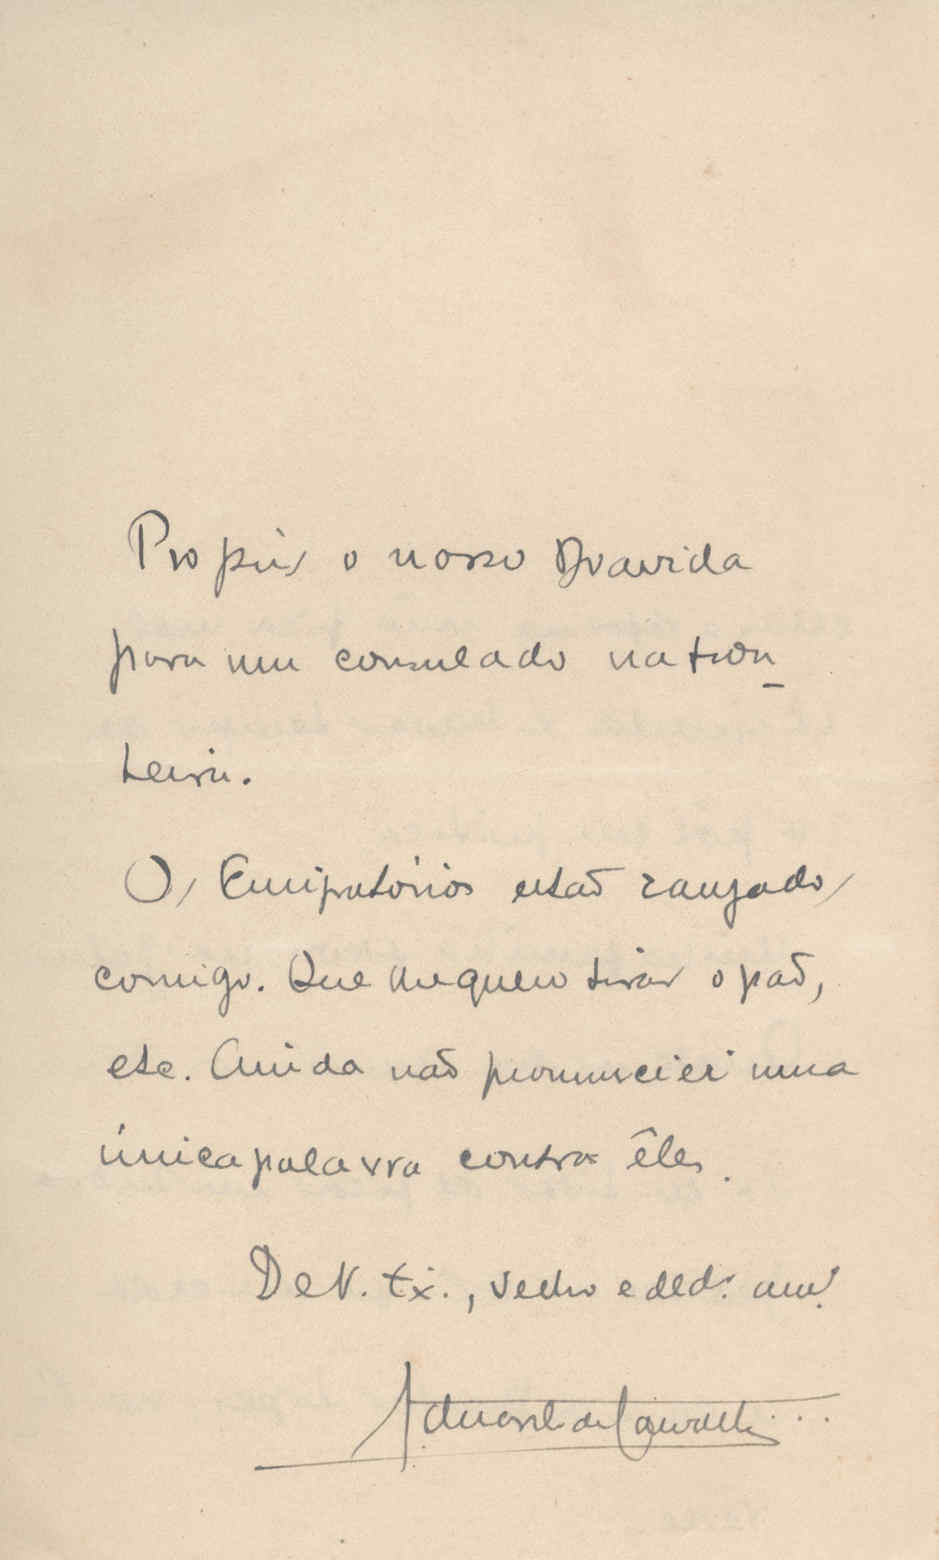 Propús o nosso Dravida
para um consulado na fron_
teira.
Os Emigratórios estaõ zangados
comigo. Que lhe quero tirar o paõ,
etc. Ainda naõ pronunciei uma
única palavra contra êles.
De V. Ex., velho e ded.º am.º
de Carvalho